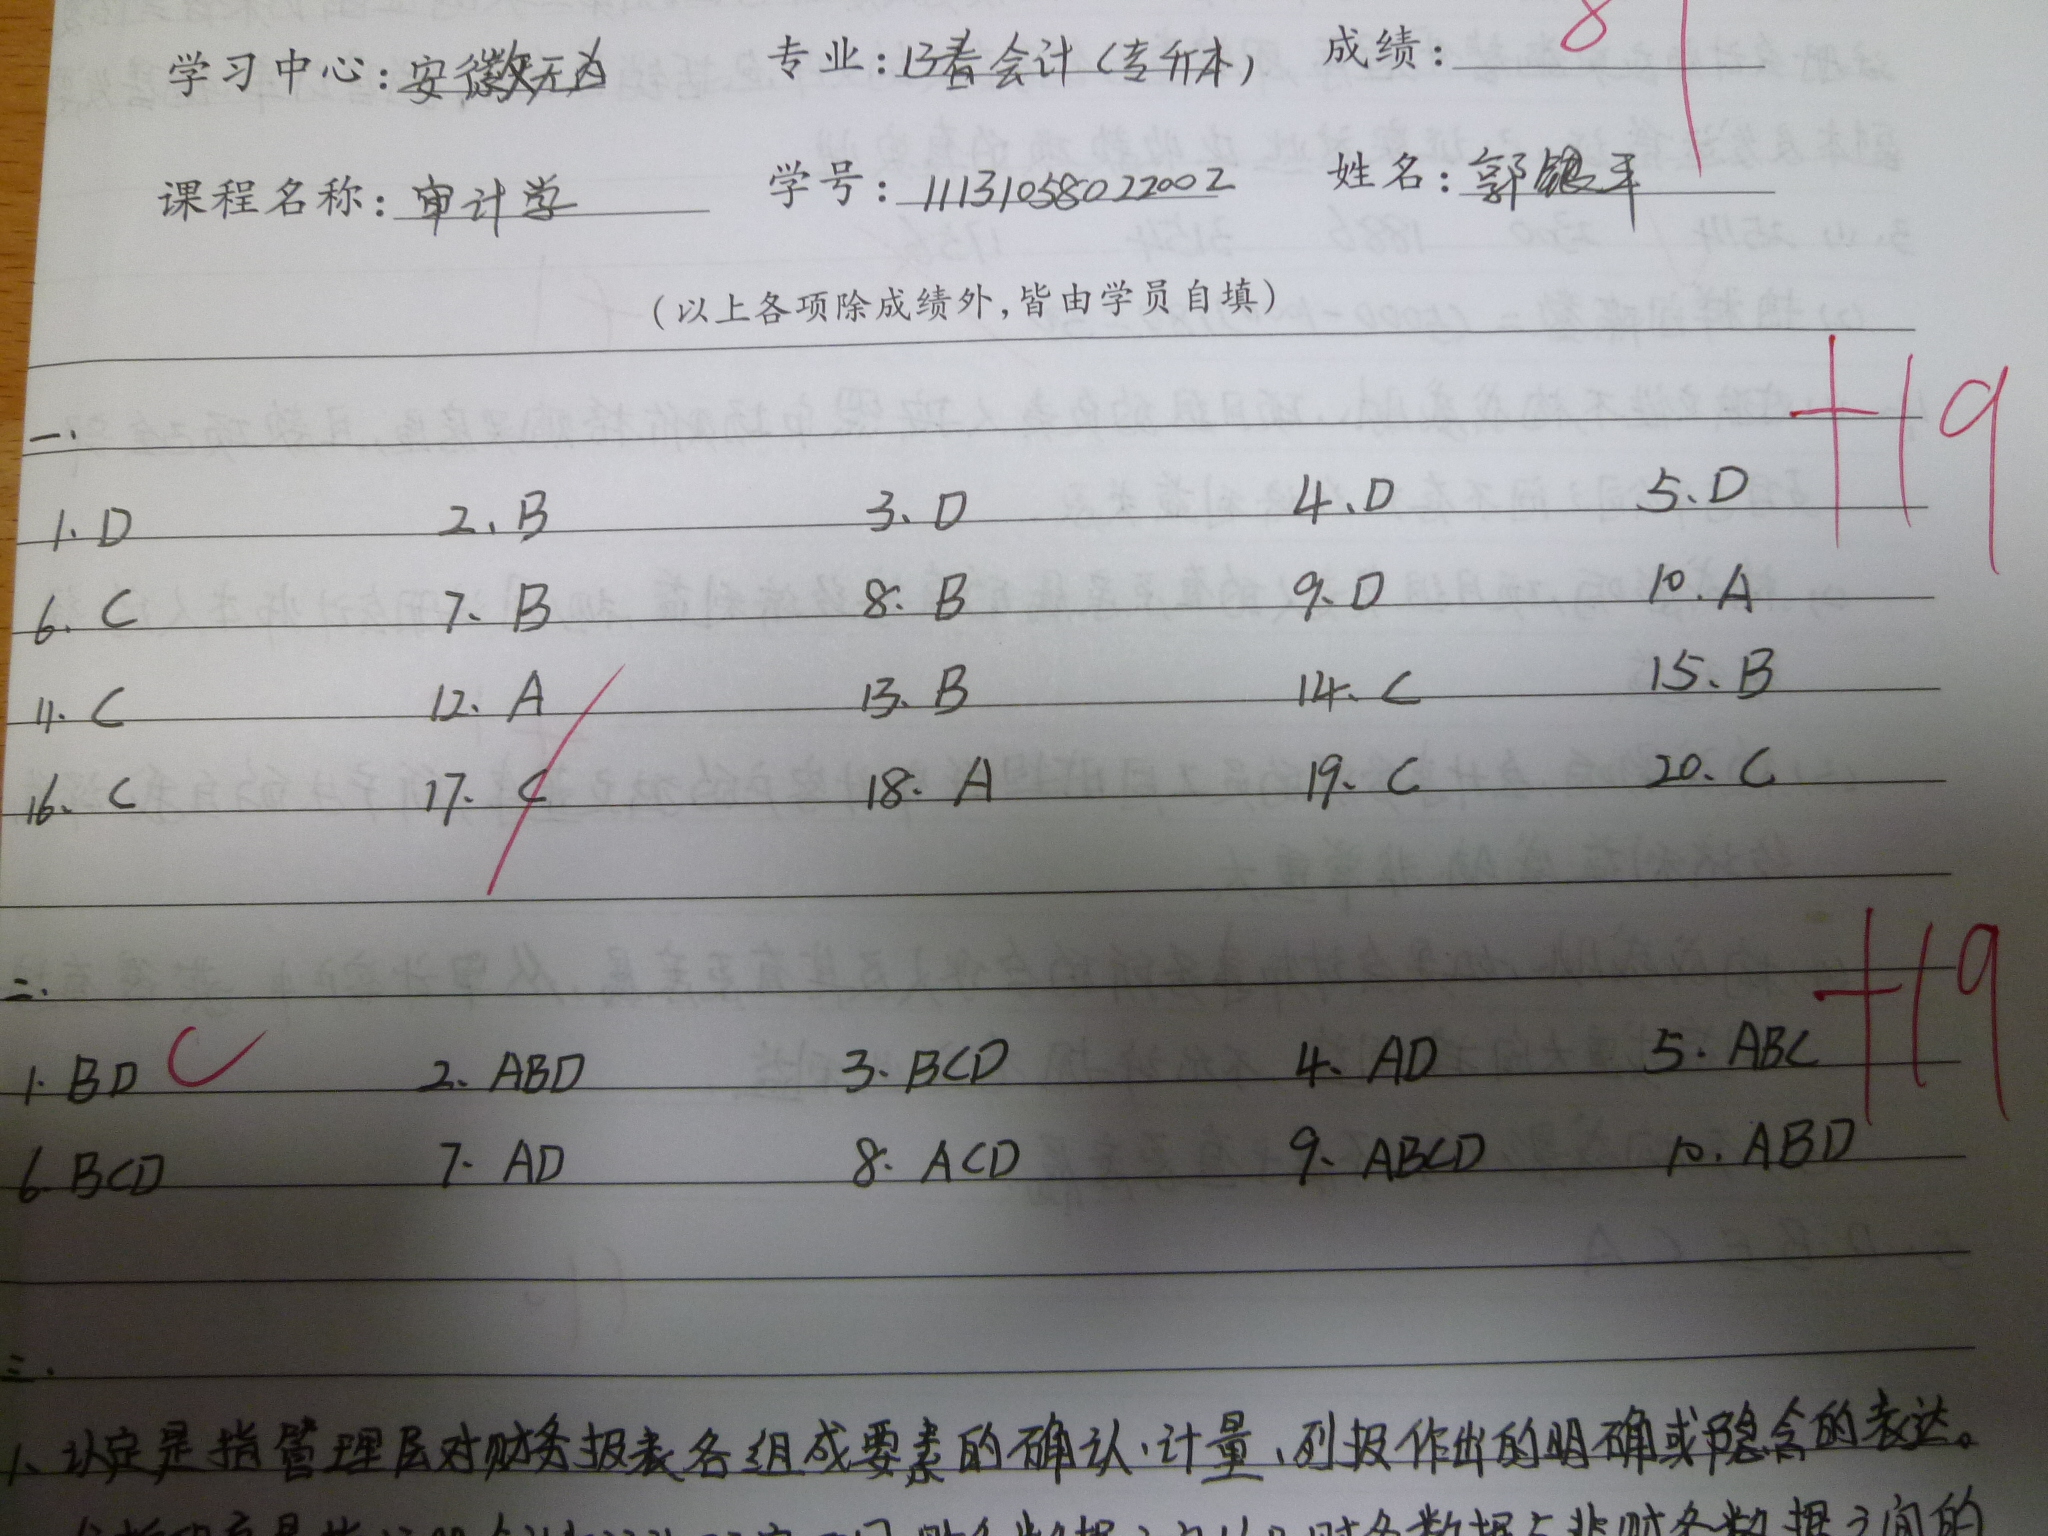 学习中心：安徽无为 专业：13春会计（专升本） 成绩：
课程名称：审计学 学号：11131058022002 姓名：郭银平
（以上各项除成绩外，皆由学员自填）
一. +19
1. D 2. B 3. D 4. D 5. D
6. C 7. B 8. B 9. D 10. A
11. C 12. A 13. B 14. C 15. B
16. C 17. C 18. A 19. C 20. C
二. +19
1. BD 2. ABD 3. BCD 4. AD 5. ABC
6. BCD 7. AD 8. ACD 9. ABCD 10. ABD
三.
1、认定是指管理层对财务报表各组成要素的确认、计量、列报作出的明确或隐含的表达。